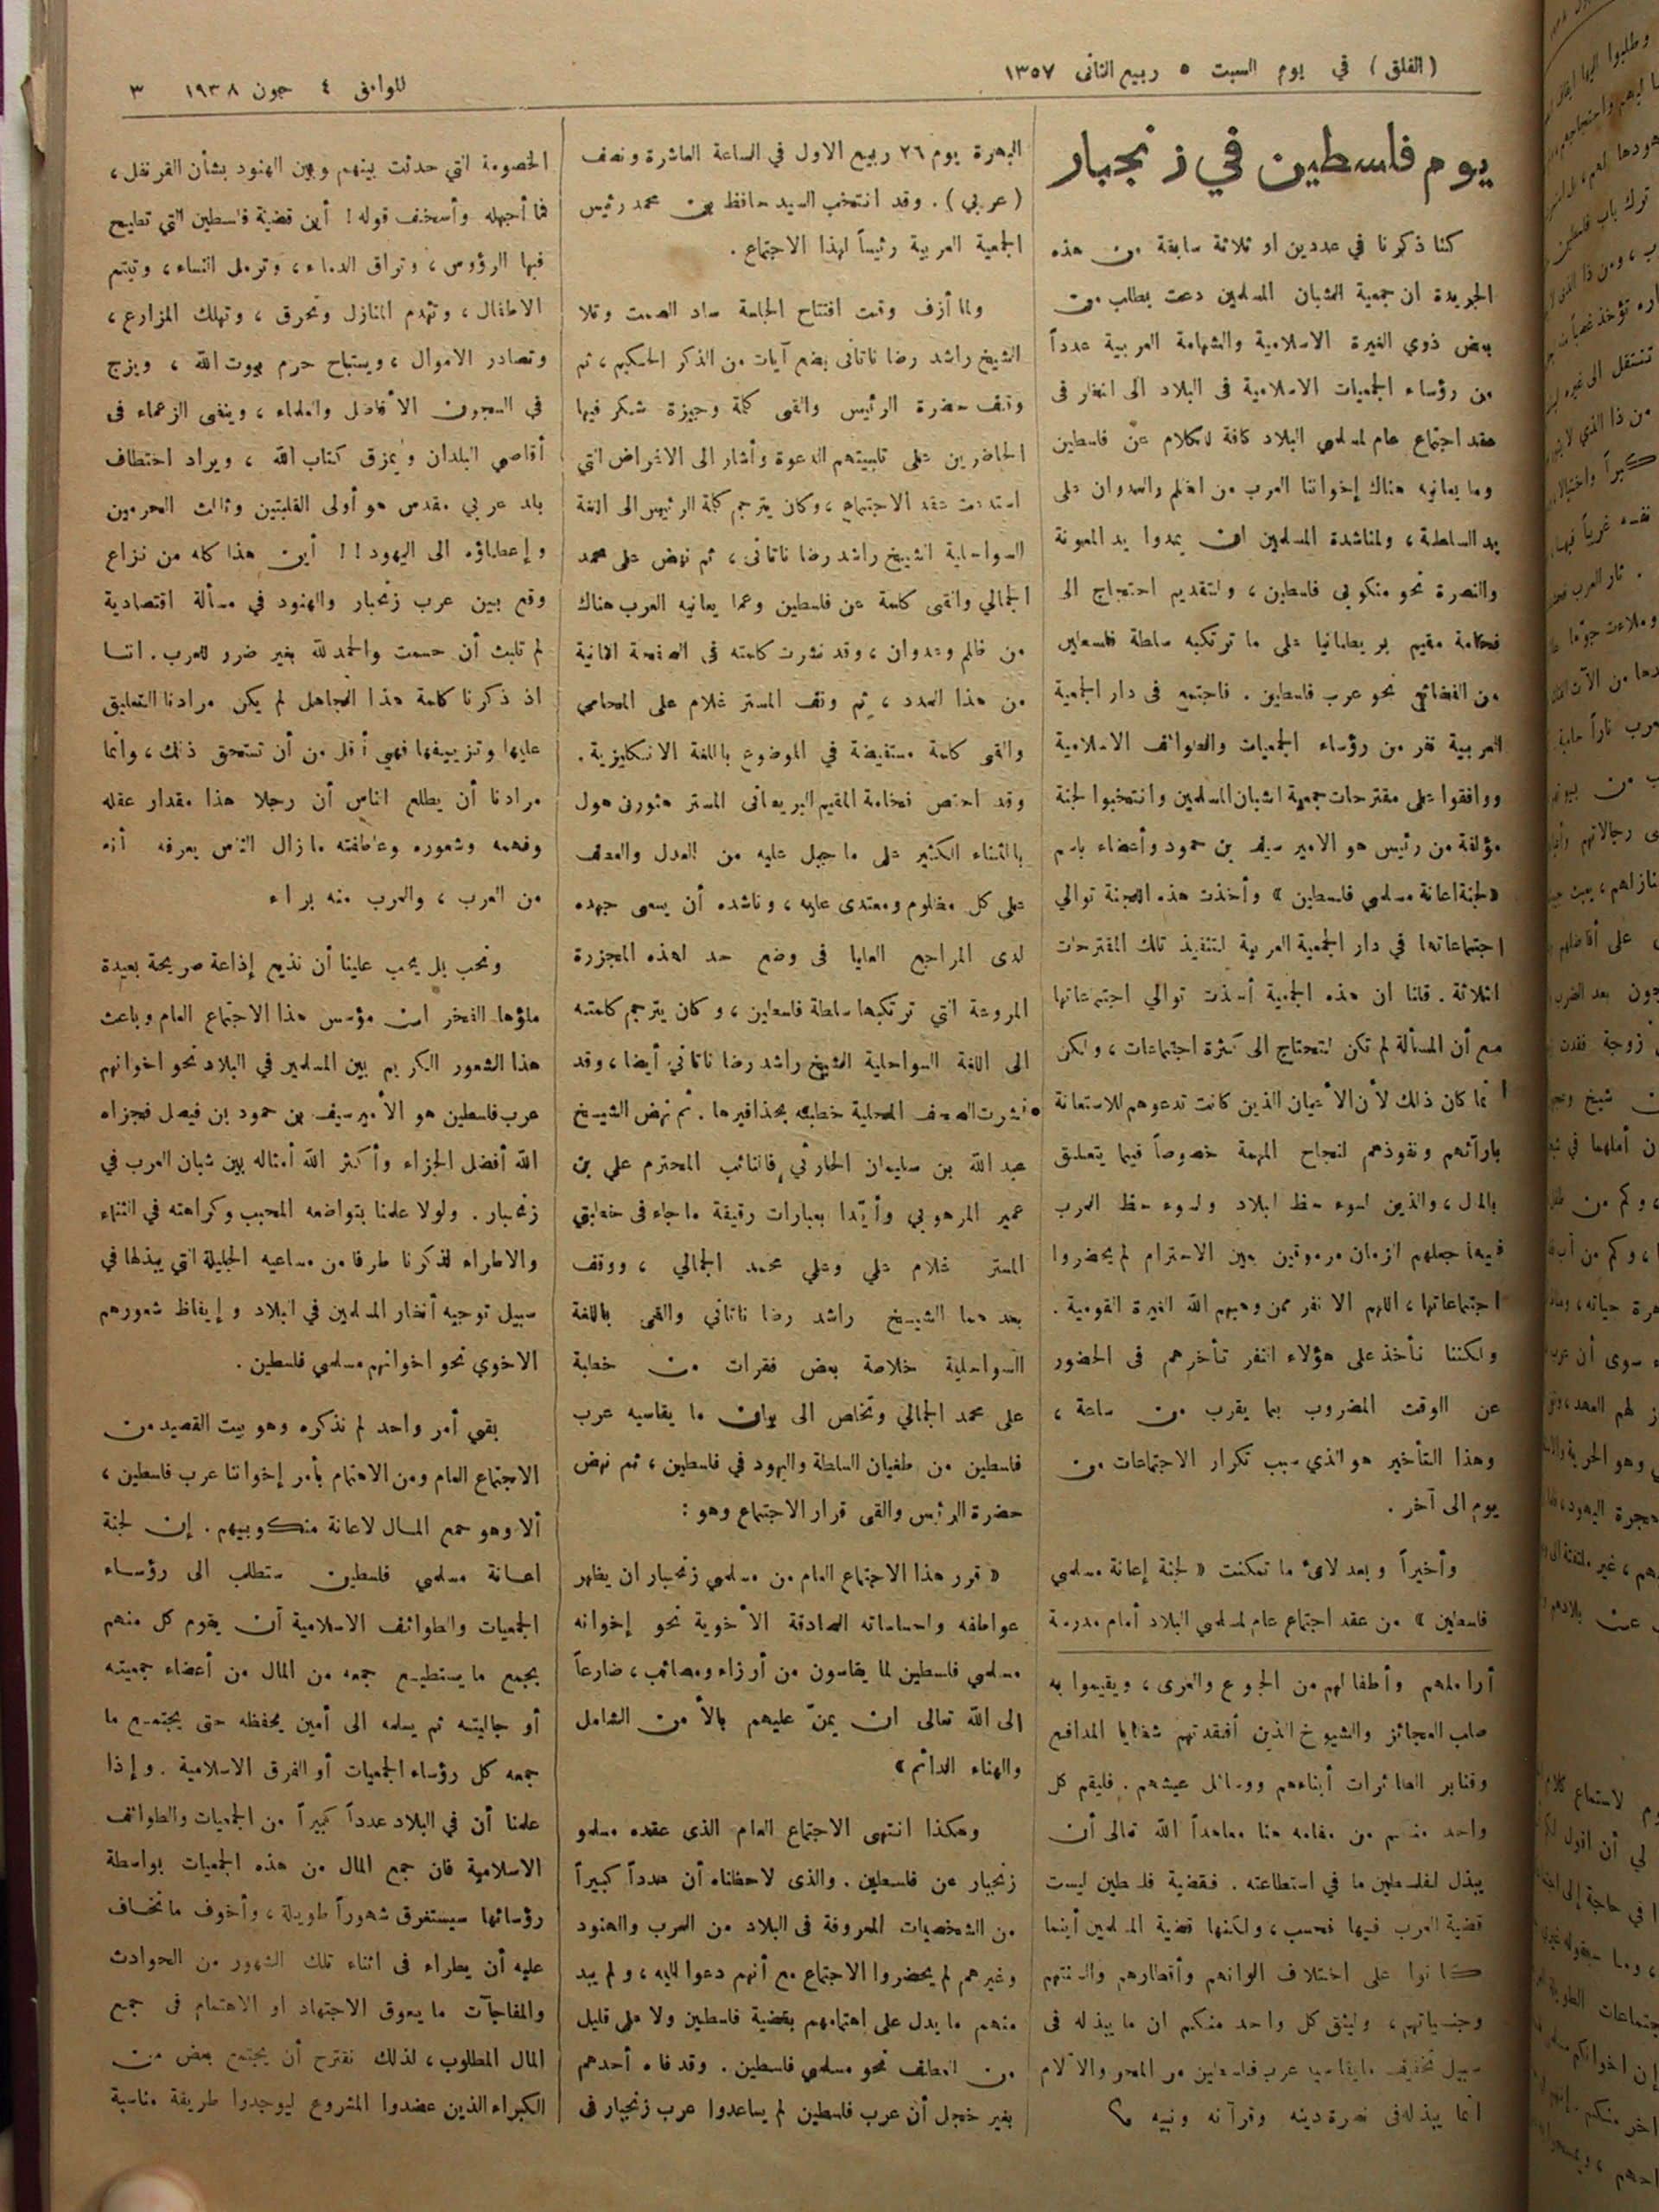 (الفلق) في يوم السبت ٥ ربيع الثانى ١٣٥٧
الموافق ٤ جون ١٩٣٨ ٣
يوم فلسطين في زنجبار
كنا ذكرنا في عددين او ثلاثة سابقة من هذه
الجريدة ان جمعية الشبان المسلمين دعت بطلب من
بعض ذوي الغيرة الاسلامية والشهامة العربية عدداً
من رؤساء الجمعيات الاسلامية فى البلاد الى النظر فى
عقد اجتماع عام لمسلمي البلاد كافة للكلام عن فلسطين
وما يعانيه هناك إخواننا العرب من الظلم والعدوان على
يد السلطة، ولمناشدة المسلمين ان يمدوا يد المعونة
والنصرة نحو منكوبى فلسطين، ولتقديم احتجاج الى
فخامة مقيم بريطانيا على ما ترتكبه سلطة فلسطين
من الفضائع نحو عرب فلسطين. فاجتمع فى دار الجمعية
العربية نفر من رؤساء الجمعيات والطوائف الاسلامية
ووافقوا على مقترحات جمعية الشبان المسلمين وانتخبوا لجنة
مؤلفة من رئيس هو الامير سيف بن حمود وأعضاء باسم
«لجنة اعانة مسلمي فلسطين» وأخذت هذه اللجنة توالي
اجتماعاتها في دار الجمعية العربية لتنفيذ تلك المقترحات
الثلاثة. قلنا ان هذه الجمعية أخذت توالي اجتماعاتها
مع أن المسألة لم تكن لتحتاج الى كثرة اجتماعات، ولكن
انما كان ذلك لأن الأعيان الذين كانت تدعوهم للاستعانة
بارآئهم ونفوذهم لنجاح المهمة خصوصاً فيما يتعلق
بالمال، والذين لسوء حظ البلاد ولسوء حظ العرب
فيها جعلهم الزمان مرموقين بعين الاحترام لم يحضروا
اجتماعاتها، اللهم الا نفر ممن وهبهم الله الغيرة القومية.
ولكننا نأخذ على هؤلاء النفر تأخرهم فى الحضور
عن الوقت المضروب بما يقرب من ساعة،
وهذا التأخير هو الذي سبب تكرار الاجتماعات من
يوم الى آخر.
وأخيراً وبعد لائ ما تمكنت «لجنة إعانة مسلمي
فلسطين» من عقد اجتماع عام لمسلمي البلاد أمام مدرسة
أراملهم وأطفالهم من الجوع والعرى، ويقيموا به
صلب العجائز والشيوخ الذين أفقدتهم شظايا المدافع
وقنابر الطائرات أبناءهم ووسائل عيشهم. فليقم كل
واحد منكم من مقامه هنا معاهداً الله تعالى أن
يبذل لفلسطين ما في استطاعته. فقضية فلسطين ليست
قضية العرب فيها فحسب، ولكنها قضية المسلمين أينما
كانوا على اختلاف الوانهم وأقطارهم والسنتهم
وجنسياتهم، وليثق كل واحد منكم ان ما يبذله فى
سبيل تخفيف مايقاسيه عرب فلسطين من المحن والآلام
انما يبذله فى نصرة دينه وقرآنه ونبيه
البهرة يوم ٢٦ ربيع الاول في الساعة العاشرة ونصف
(عربي). وقد انتخب السيد حافظ بن محمد رئيس
الجمعية العربية رئيساً لهذا الاجتماع.
ولما أزف وقت افتتاح الجلسة ساد الصمت وتلا
الشيخ راشد رضا ناتانى بضع آيات من الذكر الحكيم، ثم
وقف حضرة الرئيس والقى كلمة وجيزة شكر فيها
الحاضرين على تلبيتهم الدعوة وأشار الى الاغراض التي
استدعت عقد الاجتماع، وكان يترجم كلمة الرئيس الى اللغة
السواحلية الشيخ راشد رضا ناتانى، ثم نهض على محمد
الجمالي والقى كلمة عن فلسطين وعما يعانيه العرب هناك
من ظلم وعدوان، وقد نشرت كلمته فى الصفحة الثانية
من هذا العدد، ثم وقف المستر غلام على المحامي
والقى كلمة مستفيضة في الموضوع باللغة الانكليزية.
وقد اختص فخامة المقيم البريطانى المستر هثورن هول
بالثناء الكثير على ما جبل عليه من العدل والعطف
على كل مظلوم ومعتدى عليه، وناشده أن يسعى جهده
لدى المراجع العليا فى وضع حد لهذه المجزرة
المروعة التي ترتكبها سلطة فلسطين، وكان يترجم كلمته
الى اللغة السواحلية الشيخ راشد رضا ناتاني أيضا، وقد
نشرت الصحف المحلية خطبته بحذافيرها. ثم نهض الشيخ
عبد الله بن سليمان الحارثي فالنائب المحترم علي بن
عمير المرهوبي وأيّدا بعبارات رقيقة ماجاء فى خطبتي
المستر غلام علي وعلي محمد الجمالي، ووقف
بعدهما الشيخ راشد رضا ناتاني والقى باللغة
السواحلية خلاصة بعض فقرات من خطبة
على محمد الجمالي وتخلص الى بيان ما يقاسيه عرب
فلسطين من طغيان السلطة واليهود في فلسطين، ثم نهض
حضرة الرئيس والقى قرار الاجتماع وهو:
«قرر هذا الاجتماع العام من مسلمي زنجبار ان يظهر
عواطفه واحساساته الصادقة الأخوية نحو إخوانه
مسلمي فلسطين لما يقاسون من أرزاء ومصائب، ضارعاً
الى الله تعالى ان يمنّ عليهم بالأمن الشامل
والهناء الدائم»
وهكذا انتهى الاجتماع العام الذى عقده مسلمو
زنجبار عن فلسطين. والذى لاحظناه أن عدداً كبيراً
من الشخصيات المعروفة فى البلاد من العرب والهنود
وغيرهم لم يحضروا الاجتماع مع أنهم دعوا اليه، ولم يبد
منهم ما يدل على اهتمامهم بقضية فلسطين ولا على قليل
من العطف نحو مسلمي فلسطين. وقد فاه أحدهم
بغير خجل أن عرب فلسطين لم يساعدوا عرب زنجبار فى
الخصومة التي حدثت بينهم وبين الهنود بشأن القرنفل،
فما أجهله وأسخف قوله! أين قضية فلسطين التي تطيح
فيها الرؤوس، وتراق الدماء، وترمل النساء، وتيتم
الاطفال، وتهدم المنازل وتحرق، وتهلك المزارع،
وتصادر الاموال، ويستباح حرم بيوت الله، ويزج
في السجون الأفاضل والعلماء، وينفى الزعماء فى
أقاصي البلدان ويُمزق كتاب الله، ويراد اختطاف
بلد عربي مقدس هو أولى القبلتين وثالث الحرمين
وإعطاؤه الى اليهود!! أين هذا كله من نزاع
وقع بين عرب زنجبار والهنود في مسألة اقتصادية
لم تلبث أن حسمت والحمد لله بغير ضرر للعرب. اننا
اذ ذكرنا كلمة هذا الجاهل لم يكن مرادنا التعليق
عليها وتزييفها فهي أقل من أن تستحق ذلك، وانما
مرادنا أن يطلع الناس أن رجلا هذا مقدار عقله
وفهمه وشعوره وعاطفته مازال الناس يعرفه أنه
من العرب، والعرب منه براء
ونحب بل يجب علينا أن نذيع إذاعة صريحة بعيدة
ماؤها الفخر ان مؤسس هذا الاجتماع العام وباعث
هذا الشعور الكريم بين المسلمين في البلاد نحو اخوانهم
عرب فلسطين هو الأمير سيف بن حمود بن فيصل فجزاه
الله أفضل الجزاء وأكثر الله أمثاله بين شبان العرب في
زنجبار. ولولا علمنا بتواضعه المحبب وكراهته في الثناء
والاطراء لذكرنا طرفا من مساعيه الجليلة التي يبذلها في
سبيل توجيه أنظار المسلمين في البلاد وإيقاظ شعورهم
الاخوي نحو اخوانهم مسلمي فلسطين.
بقي أمر واحد لم نذكره وهو بيت القصيد من
الاجتماع العام ومن الاهتمام بأمر إخواننا عرب فلسطين،
ألا وهو جمع المال لاعانة منكوبيهم. إن لجنة
اعانة مسلمي فلسطين ستطلب الى رؤساء
الجمعيات والطوائف الاسلامية أن يقوم كل منهم
بجمع ما يستطيع جمعه من المال من أعضاء جمعيته
أو جاليته ثم يسلمه الى أمين يحفظه حتى يجتمع ما
جمعه كل رؤساء الجمعيات أو الفرق الاسلامية. وإذا
علمنا أن في البلاد عدداً كبيراً من الجمعيات والطوائف
الاسلامية فان جمع المال من هذه الجمعيات بواسطة
رؤسائها سيستغرق شهوراً طويلة، وأخوف ما نخاف
عليه أن يطراء فى اثناء تلك الشهور من الحوادث
والمفاجآت ما يعوق الاجتهاد او الاهتمام فى جمع
المال المطلوب، لذلك نقترح أن يجتمع بعض من
الكبراء الذين عضدوا المشروع ليوجدوا طريقة مناسبة